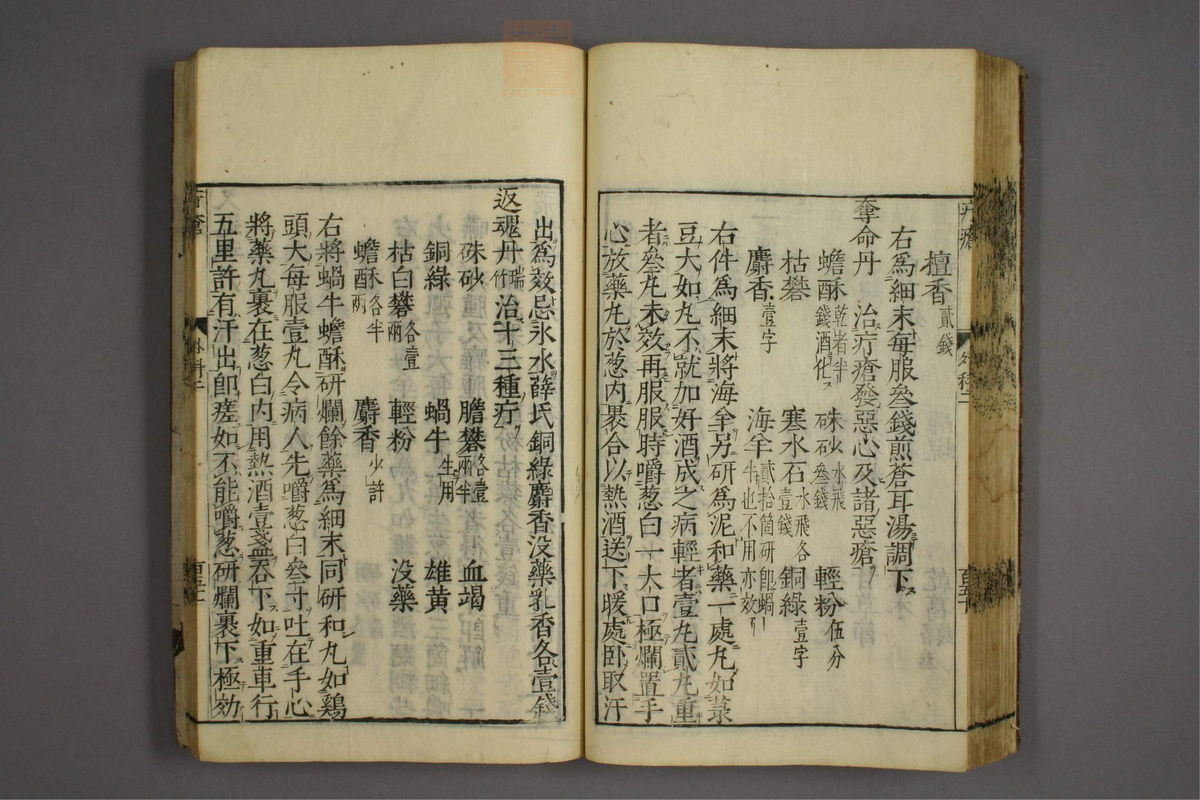 檀香貳錢
右為細末每服叄錢煎蒼耳湯調下
奪命丹　治疔瘡發惡心及諸惡瘡
蟾酥乾者半錢酒化　硃砂水飛叄錢　輕粉伍分
枯礬　寒水石水飛各壹錢　銅綠壹字
麝香壹字　海羊貳拾箇研卽蝸牛也不用亦效
右件為細末將海羊另研為泥和藥一處丸如菉
豆大如丸不就加好酒成之病輕者壹丸貳丸重
者叄丸未效再服服時嚼葱白一大口極爛置手
心放藥丸於葱內裹合以熱酒送下暖處卧取汗
出為效忌氷水薛氏銅綠麝香没藥乳香各壹錢
返魂丹瑞竹　治十三種疔
硃砂　膽礬各壹兩半　血竭
銅綠　蝸牛生用　雄黄
枯白礬各壹兩　輕粉　没藥
蟾酥各半兩　麝香少許
右將蝸牛蟾酥研爛餘藥為細末同研和丸如鷄
頭大每服壹丸令病人先嚼葱白叄寸吐在手心
將藥丸裹在葱白內用熱酒壹盞吞下如重車行
五里許有汗出卽瘥如不能嚼葱研爛裹下極効